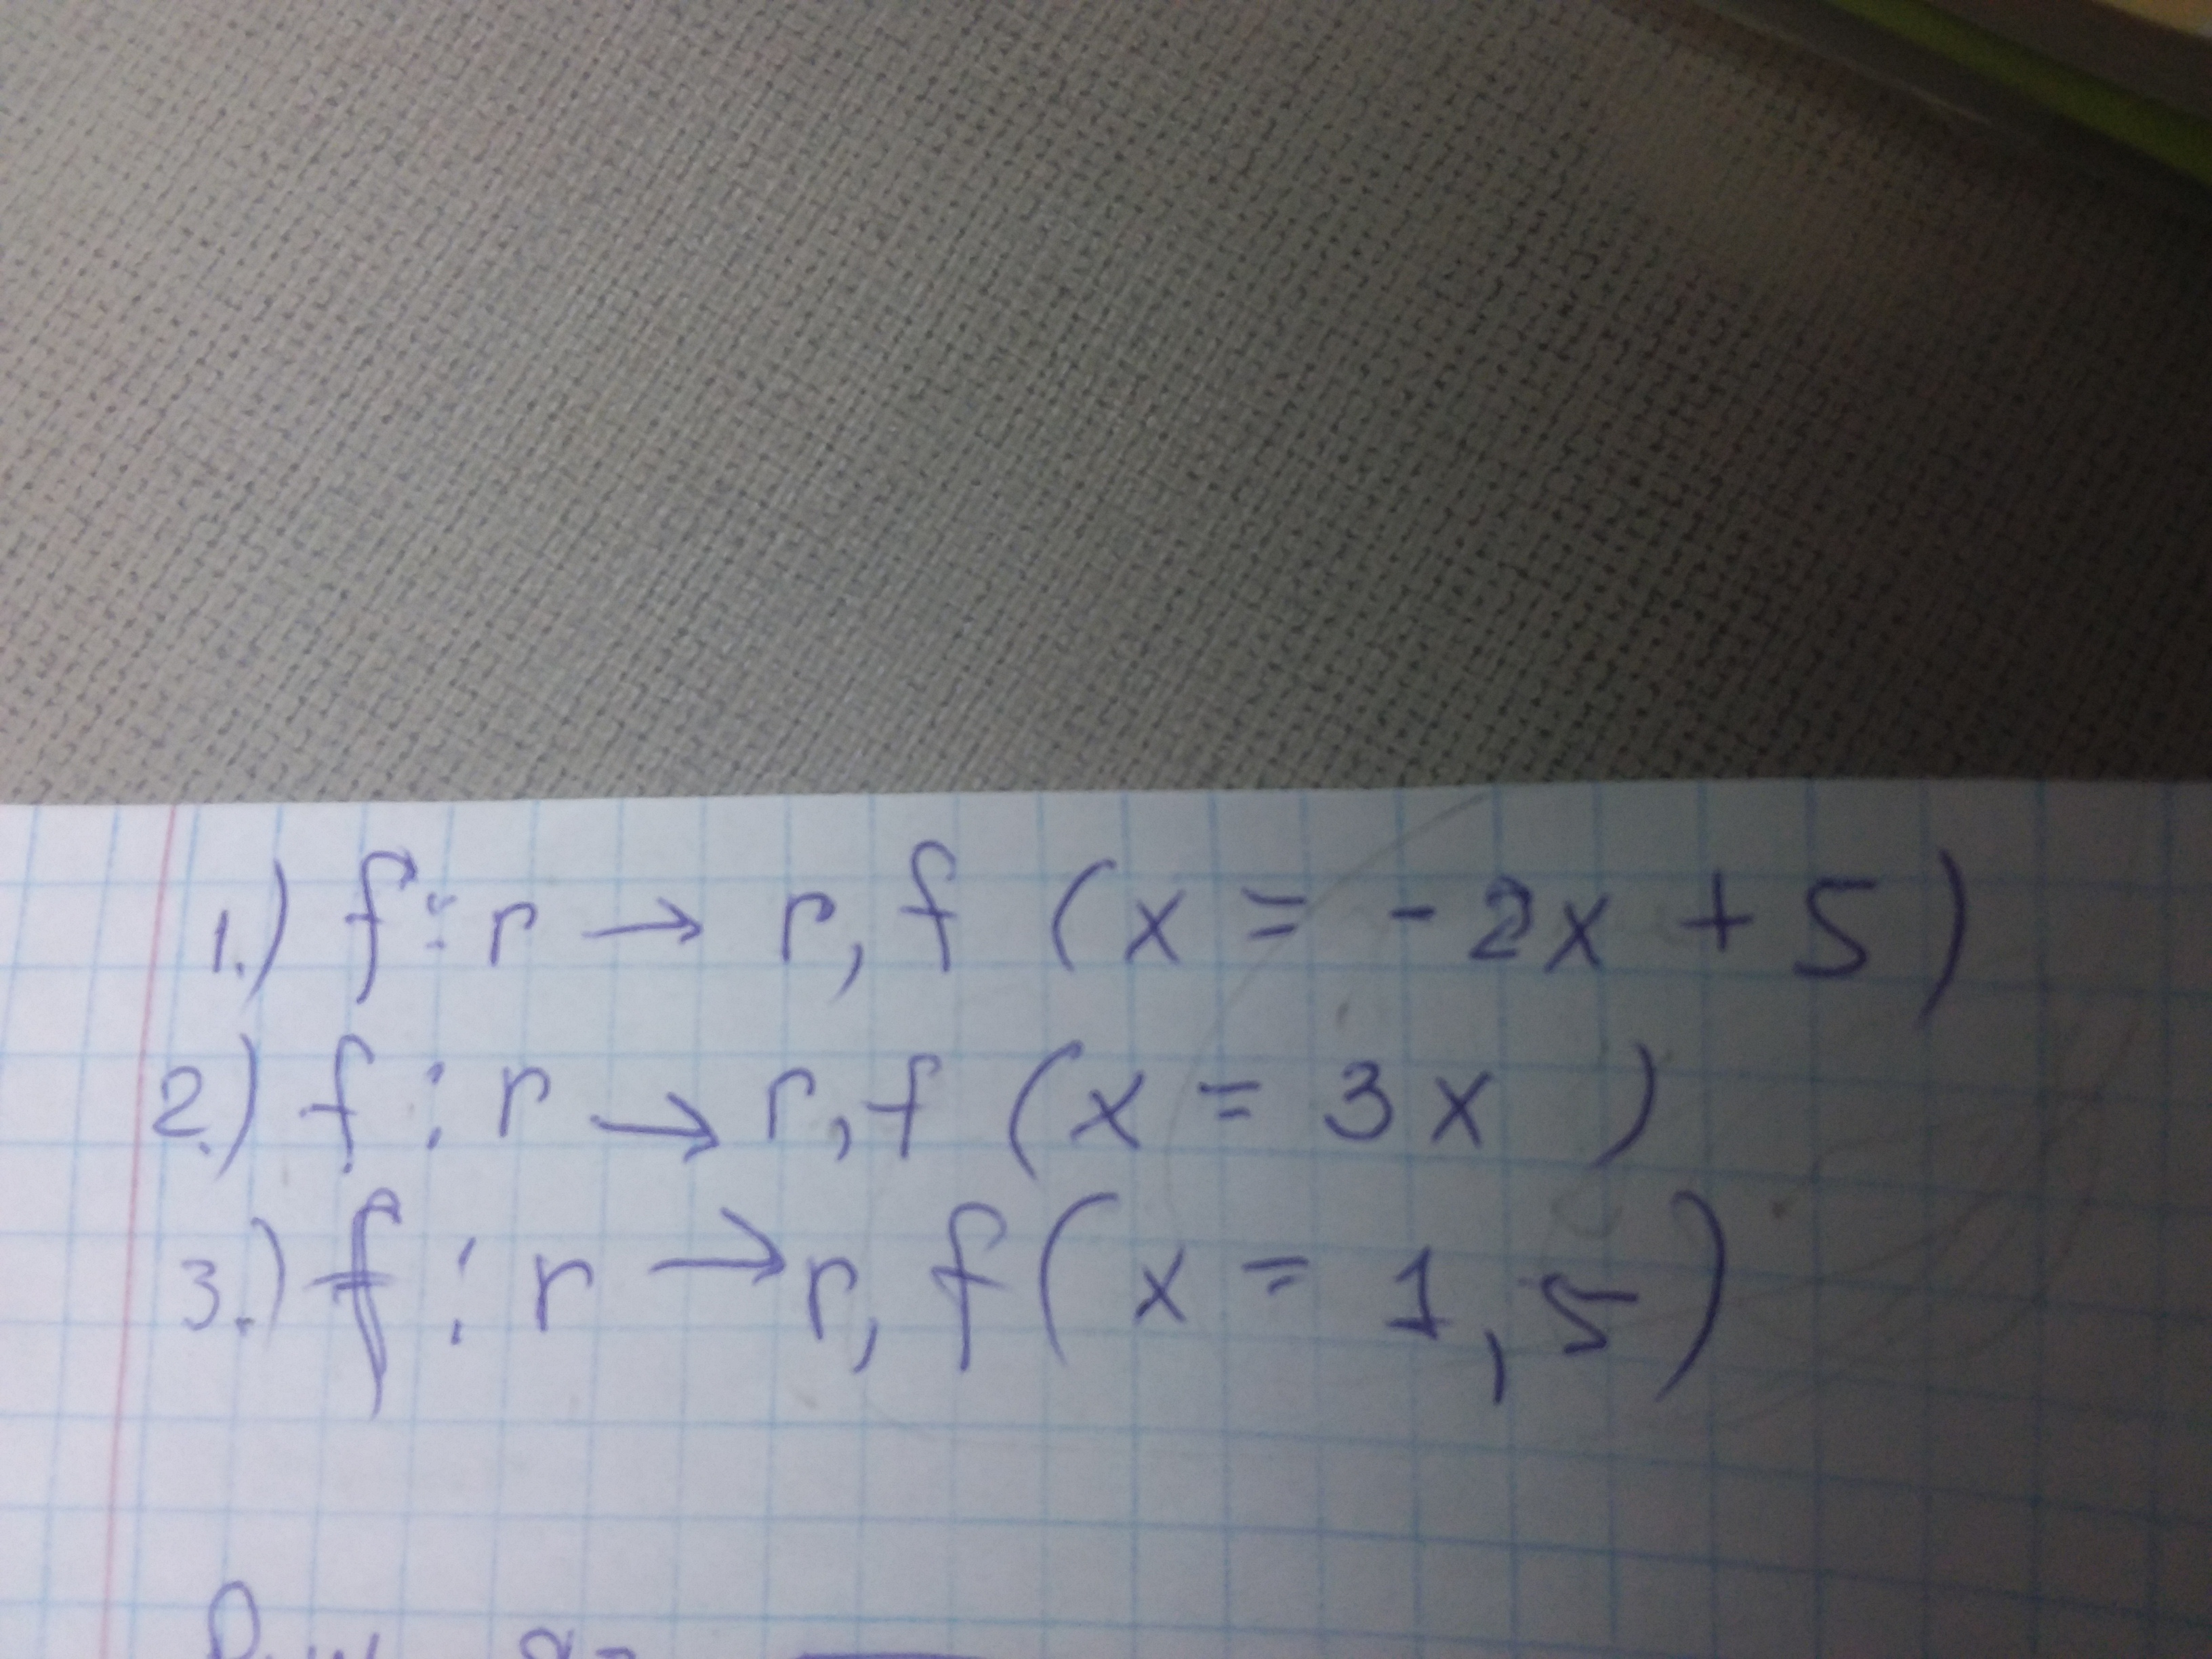 1.) f : r → r, f (x = -2x + 5)
2.) f : r → r, f (x = 3x )
3.) f : r → r, f (x = 1,5)